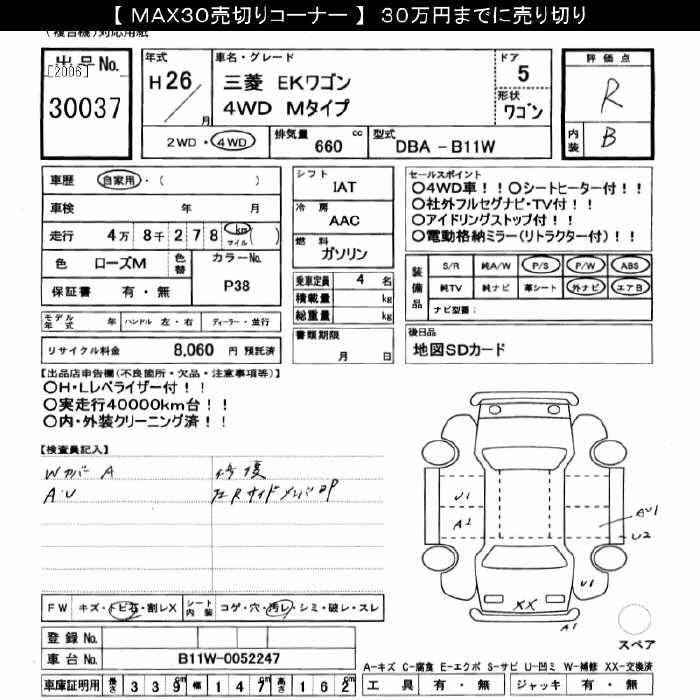 【 MAX30売切りコーナー 】 30万円までに売り切り
(複合機)対応用紙
出品No.
[2006]
30037
年式
H26
月
車名・グレード
三菱 EKワゴン
4WD Mタイプ
ドア
5
形状
ワゴン
評価点
R
内装
B
2WD・4WD
排気量
660
cc
型式
DBA - B11W
車歴
自家用・( )
車検 年 月
走行 4万 8千 2 7 8 km マイル ( )
色 ローズM
色替
カラーNo.
P38
保証書 有・無
モデル年式 年
ハンドル 左・右
ディーラー・並行
リサイクル料金 8,060 円 預託済
シフト
IAT
冷房
AAC
燃料
ガソリン
乗車定員 4 名
積載量 kg
総重量 kg
書類期限
月 日
セールスポイント
〇4WD車!!〇シートヒーター付!!
〇社外フルセグナビ・TV付!!
〇アイドリングストップ付!!
〇電動格納ミラー(リトラクター付)!!
装備品
S/R 純A/W P/S P/W ABS
純TV 純ナビ 革シート 外ナビ エアB
ナビ型番:
後日品
地図SDカード
【出品店申告欄(不良箇所・欠品・注意事項等)】
〇H・Lレベライザー付!!
〇実走行40000km台!!
〇内・外装クリーニング済!!
【検査員記入】
Wカバー A
A・U
修復
左Rサイドメンバー凹P
U1
A2
AU1
U2
U1
XX
A1
スペア
FW キズ・トビ石・割レX
シート内装 コゲ・穴・汚レ・シミ・破レ・スレ
登録 No.
車台 No. B11W-0052247
A-キズ C-腐食 E-エクボ S-サビ U-凹ミ W-補修 XX-交換済
車庫証明用 長さ 3 3 9 cm 幅 1 4 7 cm 高さ 1 6 2 cm
工具 有・無
ジャッキ 有・無